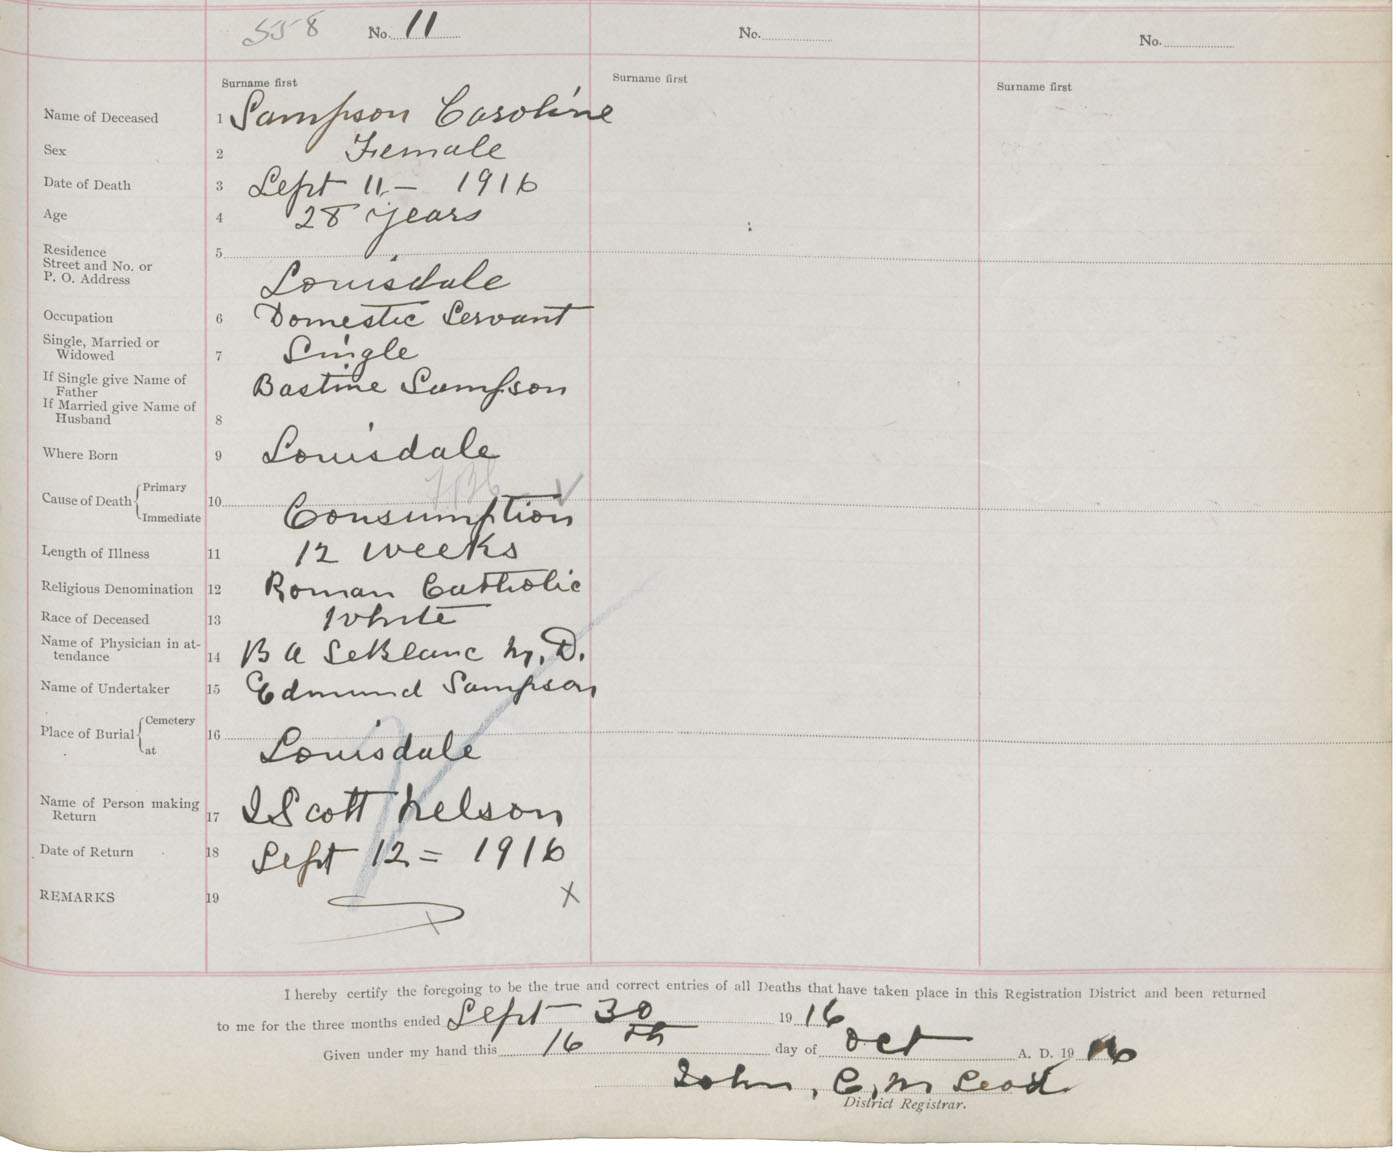 558 No. 11 No. No.
Surname first Surname first Surname first
Name of Deceased 1 Sampson Caroline
Sex 2 Female
Date of Death 3 Sept 11 - 1916
Age 4 28 years
Residence 5
Street and No. or
P. O. Address Louisdale
Occupation 6 Domestic Servant
Single, Married or
Widowed 7 Single
If Single give Name of
Father Bastine Sampson
If Married give Name of
Husband 8
Where Born 9 Louisdale
Cause of Death { Primary 10
Immediate Consumption
Length of Illness 11 12 weeks
Religious Denomination 12 Roman Catholic
Race of Deceased 13 White
Name of Physician in at-
tendance 14 B A LeBlanc M. D.
Name of Undertaker 15 Edmund Sampson
Place of Burial { Cemetery 16
at Louisdale
Name of Person making
Return 17 Scott Nelson
Date of Return 18 Sept 12 = 1916
REMARKS 19 X
I hereby certify the foregoing to be the true and correct entries of all Deaths that have taken place in this Registration District and been returned
to me for the three months ended Sept 30 19 16
Given under my hand this 16th day of Oct A. D. 19 16
John, C, McLeod
District Registrar.